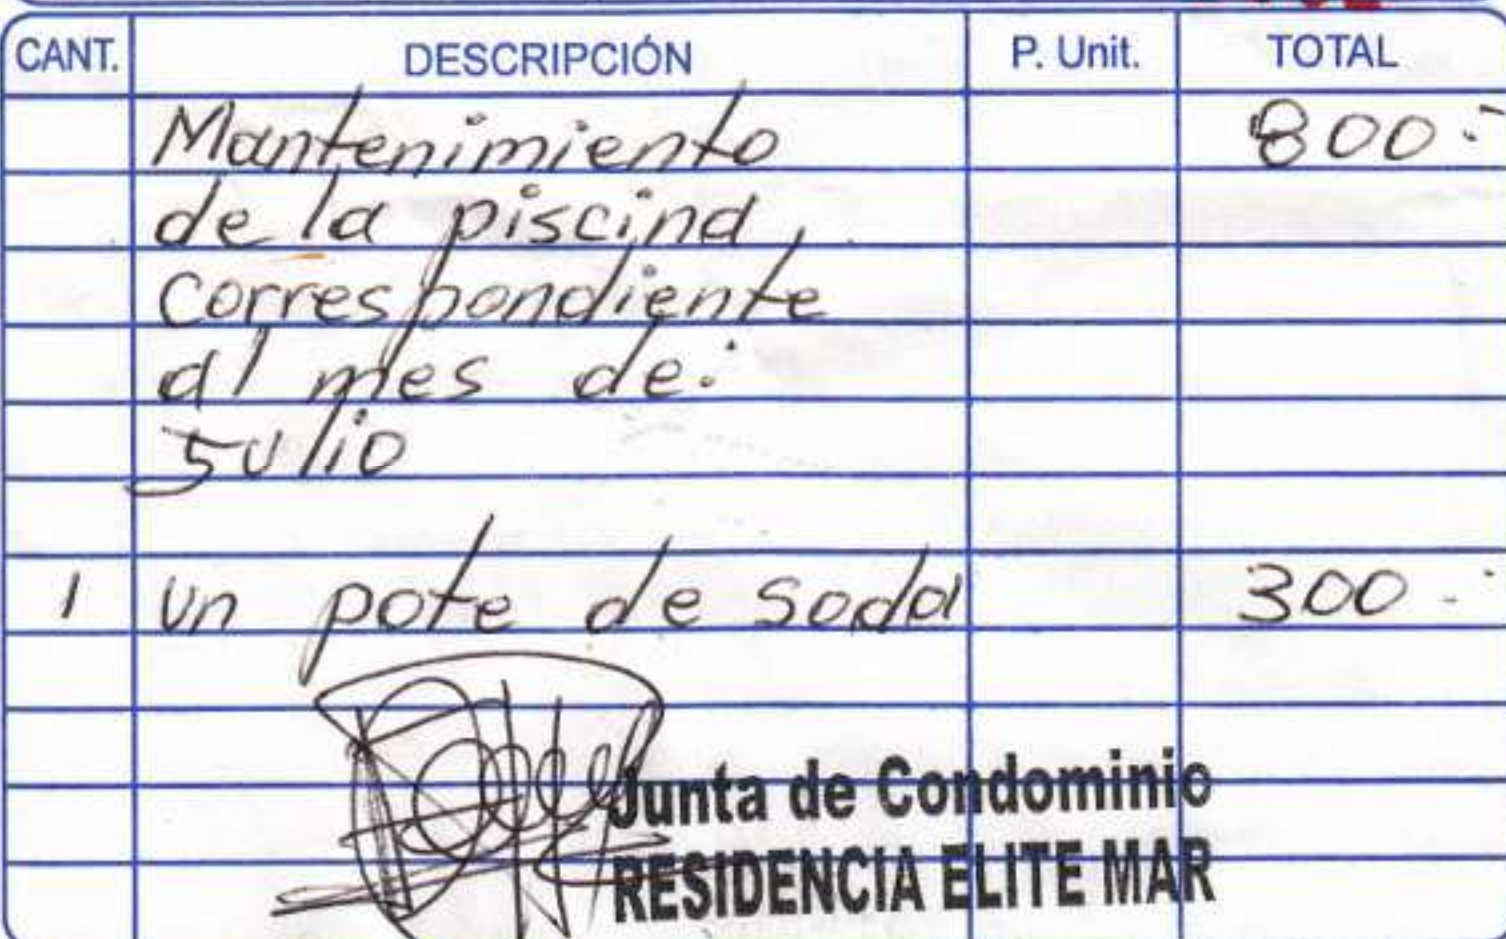 CANT. DESCRIPCIÓN P. Unit. TOTAL
Mantenimiento 800.-
de la piscina,
correspondiente
al mes de:
Julio
1 un pote de soda 300.-
Junta de Condominio
RESIDENCIA ELITE MAR